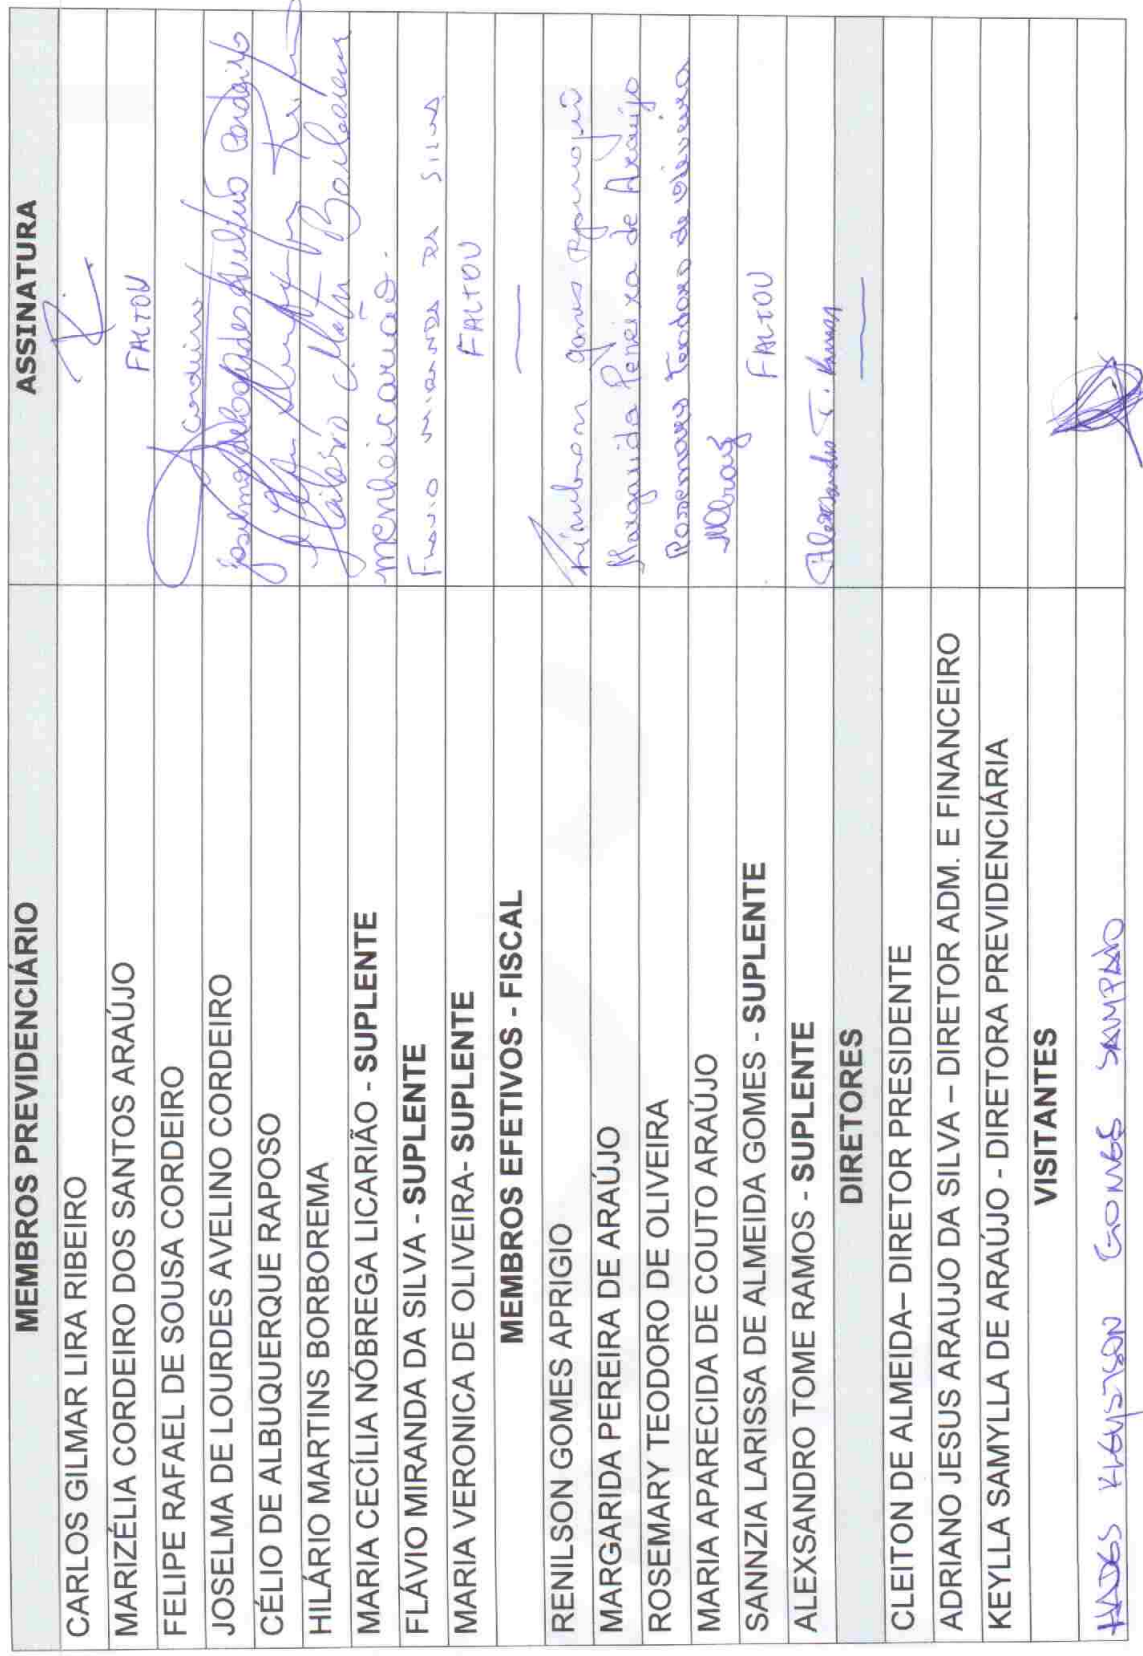 MEMBROS PREVIDENCIÁRIO ASSINATURA
CARLOS GILMAR LIRA RIBEIRO
MARIZÉLIA CORDEIRO DOS SANTOS ARAÚJO FALTOU
FELIPE RAFAEL DE SOUSA CORDEIRO
JOSELMA DE LOURDES AVELINO CORDEIRO
CÉLIO DE ALBUQUERQUE RAPOSO
HILÁRIO MARTINS BORBOREMA
MARIA CECÍLIA NÓBREGA LICARIÃO - SUPLENTE
FLÁVIO MIRANDA DA SILVA - SUPLENTE FLAVIO MIRANDA DA SILVA
MARIA VERONICA DE OLIVEIRA- SUPLENTE FALTOU
MEMBROS EFETIVOS - FISCAL
RENILSON GOMES APRIGIO
MARGARIDA PEREIRA DE ARAÚJO Margarida Pereira de Araújo
ROSEMARY TEODORO DE OLIVEIRA Rosemary Teodoro de Oliveira
MARIA APARECIDA DE COUTO ARAÚJO
SANNZIA LARISSA DE ALMEIDA GOMES - SUPLENTE FALTOU
ALEXSANDRO TOME RAMOS - SUPLENTE
DIRETORES
CLEITON DE ALMEIDA– DIRETOR PRESIDENTE
ADRIANO JESUS ARAUJO DA SILVA – DIRETOR ADM. E FINANCEIRO
KEYLLA SAMYLLA DE ARAÚJO - DIRETORA PREVIDENCIÁRIA
VISITANTES
GOMES SAMPAIO